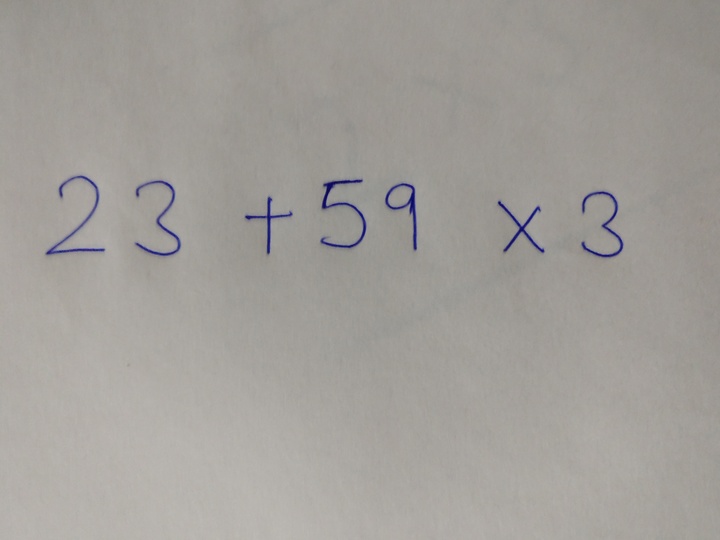 23 + 59 × 3